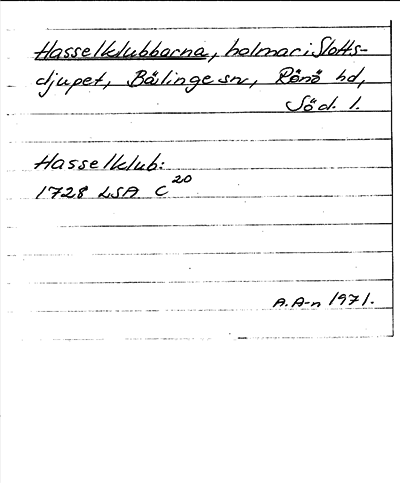 Hasselklubbarna, holmar i Slotts-
djupet, Bälinge sn, Rönö hd,
Söd. l.
Hasselklub:
1728 LSA C 20
A. A-n 1971.